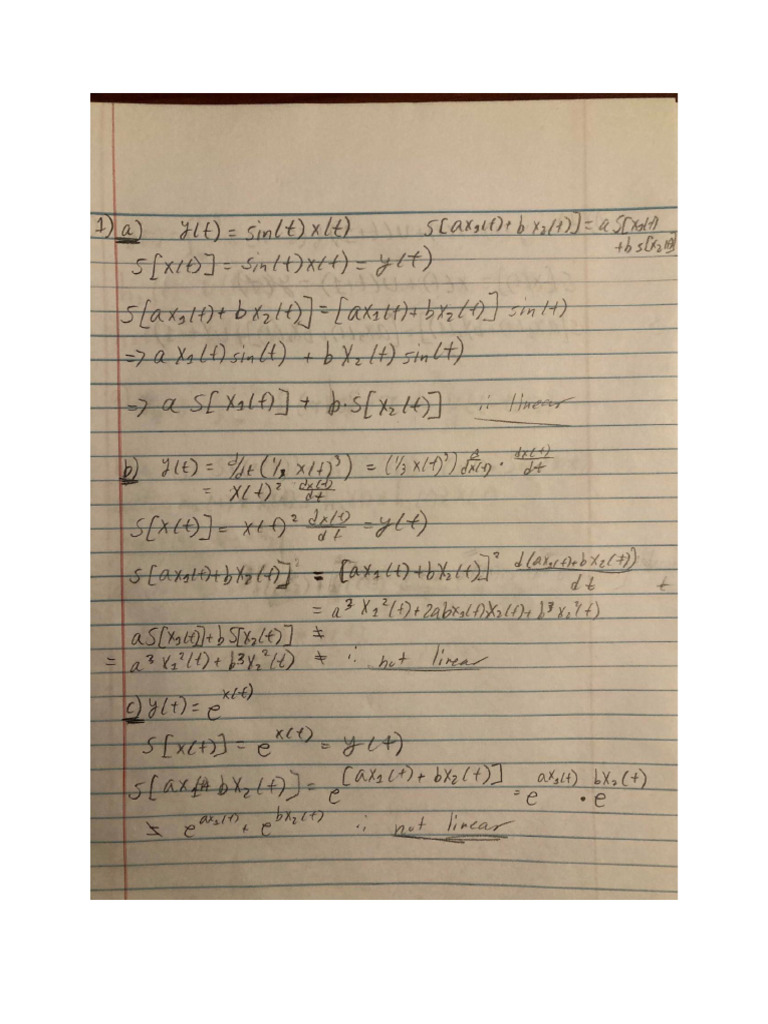 1) a) y(t) = sin(t) x(t) S[ax₁(t) + b x₂(t)] = a S[x₁(t)]
+ b S[x₂(t)]
S[x(t)] = sin(t) x(t) = y(t)
S[ax₁(t) + b x₂(t)] = [ax₁(t) + bx₂(t)] sin(t)
=> a x₁(t) sin(t) + b x₂(t) sin(t)
=> a S[x₁(t)] + b·S[x₂(t)] ∴ linear
b) y(t) = d/dt (1/3 x(t)³) = (1/3 x(t)³) d/dx(t) · dx(t)/dt
= x(t)² dx(t)/dt
S[x(t)] = x(t)² dx(t)/dt = y(t)
S[ax₁(t) + bx₂(t)] = [ax₁(t) + bx₂(t)]² d(ax₁(t) + bx₂(t))/dt t
= a³ x₁²(t) + 2abx₁(t)x₂(t) + b³x₂²(t)
aS[x₁(t)] + bS[x₂(t)] ≠
= a³ x₁²(t) + b³x₂²(t) ≠ ∴ not linear
c) y(t) = e^x(t)
S[x(t)] = e^x(t) = y(t)
S[ax₁ + bx₂(t)] = e^[ax₁(t) + bx₂(t)] = e^ax₁(t) · e^bx₂(t)
≠ e^ax₁(t) + e^bx₂(t) ∴ not linear